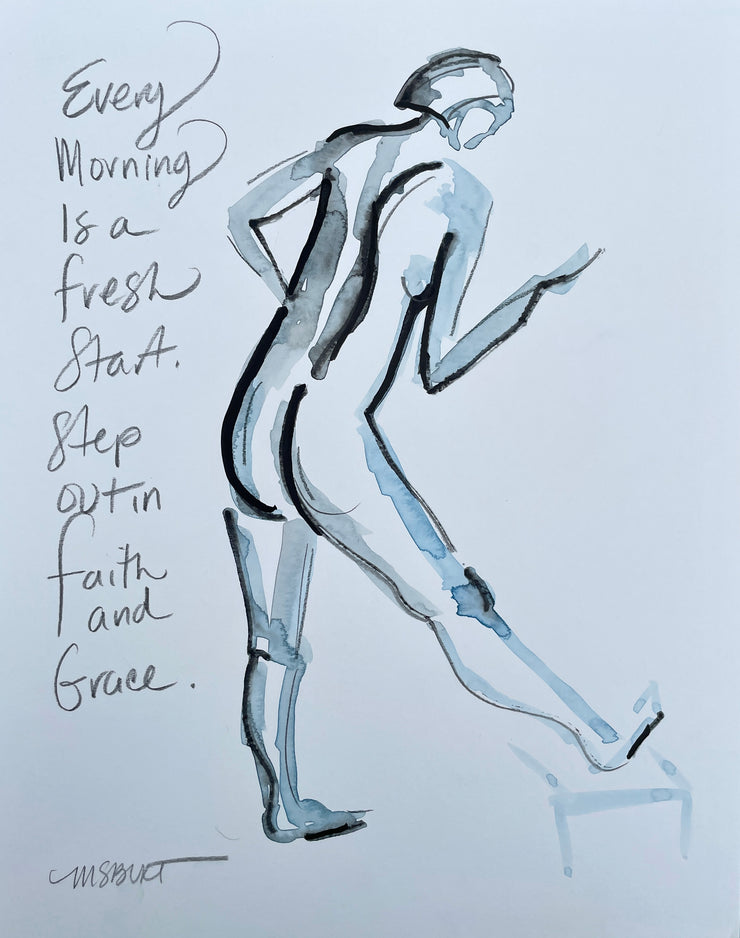 Every
Morning
Is a
fresh
Start.
Step
out in
faith
and
Grace.